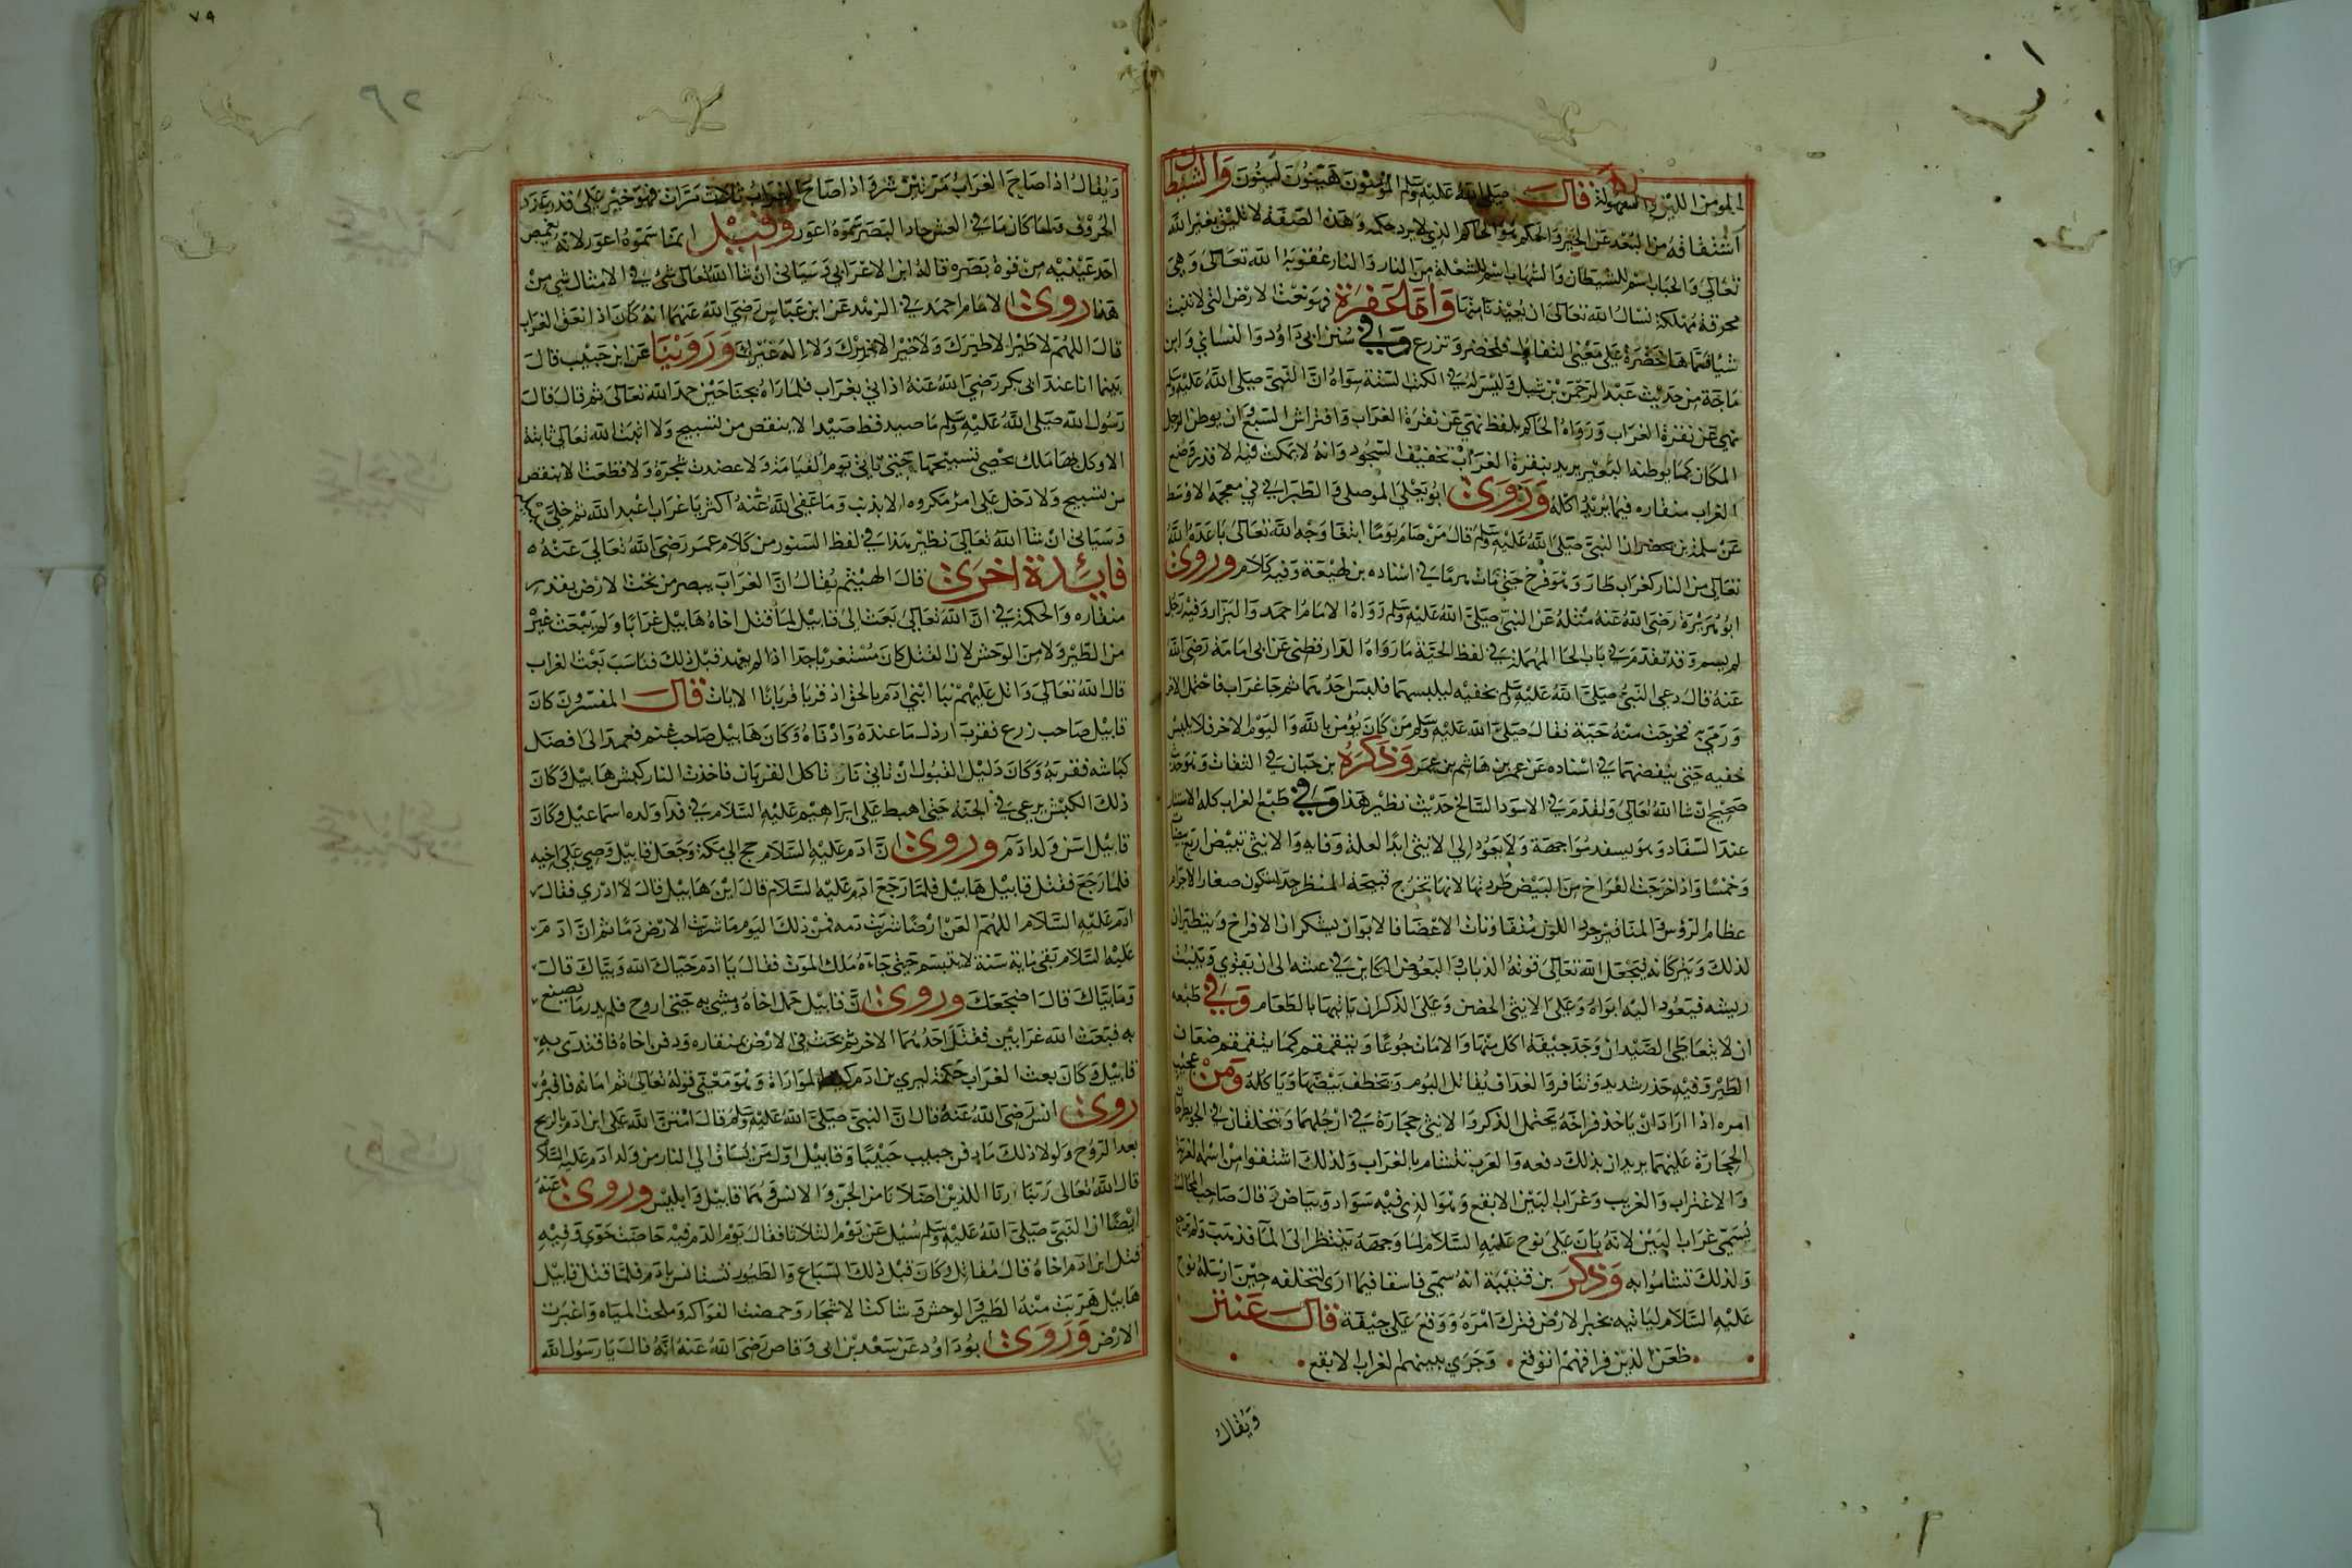 المومن اللين والسهولة قال صلى الله عليه وسلم المؤمنون هينون لينون والشيطان
اشتقاقه من البعد عن الخير والحكم هو الحاكم الذي لا يرد حكمه وهذه الصفة لا تليق بغير الله
تعالى والحباب اسم للشيطان والشهاب اسم للشعلة من النار والنار عقوبة الله تعالى وهي
محرقة مهلكة نسال الله تعالى ان يعيذنا منها واما عفرة فهو نعت لارض التي لا تنبت
شيا فسماها خضرة على معنى التفاول فتخضر وتزرع وفي سنن ابي داود والنسائي وابن
ماجة من حديث عبد الرحمن بن شبل وليس له في الكتب الستة سواه ان النبي صلى الله عليه وسلم
نهي عن نقرة الغراب ورواه الحاكم بلفظ نهي عن نقرة الغراب وافتراش السبع وان يوطن الرجل
المكان كما يوطنه البعير يريد بنقرة الغراب تخفيف السجود وانه لا يمكث فيه لا قدر وضع
الغراب منقاره فيما يريد اكله وروى ابو يعلي الموصلي والطبراني في معجمه الاوسط
عن سلمة بن ان النبي صلى الله عليه وسلم قال من صام يوما ابتغا وجه الله تعالى باعده الله
تعالى من النار كغراب طار وهو فرخ حتى مات هرما في اسناده بن لهيعة وفيه كلام وروى
ابو هريرة رضي الله عنه مثله عن النبي صلى الله عليه وسلم رواه الامام احمد والبزار وفيه رجل
لم يسم وقد تقدم في باب الحا المهملة في لفظ الحية ما رواه الدارقطني عن ابي امامة رضي الله
عنه قال دعي النبي صلى الله عليه وسلم بخفيه ليلبسهما فلبس احدهما ثم جا غراب فاحتمل الاخر
ورمى فخرجت منه حية فقال صلى الله عليه وسلم من كان يؤمن بالله واليوم الاخر فلا يلبس
خفيه حتى ينفضهما في اسناده عن عمر بن هاشم بن عمر وذكره بن حبان في الثقات وهو حديث
صحيح ان شا الله تعالى وتقدم في الاسود السالخ حديث نظير هذا وفي طبع الغراب كله الاستتار
عند السفاد وهو يسفد مواجهة ولا يعود الي الانثى ابدا لعلة وفايه والانثى تبيض اربع بيضات
وخمسا واذا خرجت الفراخ من البيض طردتها لانها تخرج قبيحة المنظر جدا تكون صغار الاجرام
عظام الرؤس والمناقير جرد اللون متفاوتات الاعضا فالابوان ينكران الافراخ ويطيران
لذلك ويتركانه فيجعل الله تعالى قوته الذباب والبعوض الكاين في عشه الى ان يقوي وينبت
ريشه فيعود اليه ابواه وعلى الانثى الحضن وعلى الذكر ان ياتيها بالطعام وفي طبعه
ان لا يتعاطى الصيد ان وجد جيفة اكل منها والا مات جوعا ويتقمقم كما يتقمقم ضعاف
الطير وفيه حذر شديد وتنافر والغداف يقاتل البوم ويخطف بيضها وياكله ومن عجيب
امره اذا اراد ان ياخذ فراخه يحتمل الذكر والانثى حجارة في ارجلهما ويتحلقان في الجو يطرحا
الحجارة عليهما يريدان بذلك دفعه والعرب تتشام بالغراب ولذلك اشتقوا من اسمه الغربة
والاغتراب والغريب وغراب البين الابقع وهو الذي فيه سواد وبياض وقال صاحب المجالسة
يسمى غراب البين لانه بان على نوح عليه السلام لما وجهه ينظر الى الما فذهب ولم يرجع
ولذلك تشاموا به وذكر بن قتيبة انه سمي فاسقا فيما ارى لتخلفه حين ارسله نوح
عليه السلام لياتيه بخبر لارض فترك امره ووقع على جيفة قال عنتر
ظعن الذين فراقهم اتوقع وجرى ببينهم لغراب لابقع
ويقال
٧٩
ويقال اذا صاح الغراب مرتين شر واذا صاح الغراب ثلاث مرات فهو خير على قدر عدد
الحروف فلما كان ما في العش حاد البصر سموه اعور وقيل انما سموه اعور لانه يغمض
احد عينيه من قوة بصره قاله ابن الاعرابي وسياتي ان شا الله تعالى شي في الامثال شي من
هذا روى الامام احمد في الزهد عن ابن عباس رضي الله عنهما انه كان اذا نعق الغراب
قال اللهم لا طير الا طيرك ولا خير الا خيرك ولا اله غيرك وروينا عن ابن حبيب قال
بينما انا عند ابي بكر رضي الله عنه اذ اتي بغراب فلما راه بجناحين حمد الله تعالى ثم قال قال
رسول الله صلى الله عليه وسلم ما صيد قط صيد الا ينقص من تسبيح ولا انبت الله تعالى نابتة
الا وكل بها ملك يحصي تسبيحها حتى ياتي يوم القيامة ولا عضدت شجرة ولا قطعت الا بنقص
من تسبيح ولا دخل على امرء مكروه الا بذنب وما عفى الله عنه اكثر يا غراب اعبد الله ثم خلى سبيله
وسياتي ان شا الله تعالى نظير هذا في لفظ السنور من كلام عمر رضي الله تعالى عنه ه
فايدة اخرى قال الهيثم يقال ان الغراب يبصر من تحت لارض بقدر
منقاره والحكمة في ان الله تعالى بعث الى قابيل لما قتل اخاه هابيل غرابا ولم يبعث غيره
من الطير ولا من الوحش لان القتل كان مستغربا جدا اذ لم يعهد قبل ذلك فناسب بعث لغراب
قال الله تعالى واتل عليهم نبا ابني ادم بالحق اذ قربا قربانا الايات قال المفسرون كان
قابيل صاحب زرع فقرب ارذل ما عنده وادناه وكان هابيل صاحب غنم فعمد الى افضل
كباشه فقربه وكان دليل القبول ان تاتي نار تاكل القربان فاخذت النار كبش هابيل وكان
ذلك الكبش يرعى في الجنة حتى اهبط على ابراهيم عليه السلام في فدا ولده اسماعيل وكان
قابيل اسن ولد ادم وروى ان ادم عليه السلام حج الى مكة وجعل قابيل وصي على اخيه
فلما رجع فقتل قابيل هابيل فلما رجع ادم عليه السلام قال اين هابيل قال لا ادري فقال
ادم عليه السلام اللهم العن ارضا شربت دمه فمن ذلك اليوم ما شربت الارض دما ثم ان ادم
عليه السلام بقى ماية سنة لا يتبسم حتى جاءه ملك الموت فقال يا ادم حياك الله وبياك قال
وما بياك قال اضحكك وروى ان قابيل حمل اخاه ومشى به حتى اروح فلم يدر ما يصنع
به فبعث الله غرابين فقتل احدهما الاخر ثم بحث في الارض بمنقاره ودفن اخاه فاقتدى به
قابيل وكان بعث الغراب حكمة ليري بن ادم المواراة وهو معنى قوله تعالى ثم اماته فاقبره
روى انس رضي الله عنه قال ان النبي صلى الله عليه وسلم قال امتن الله على ابن ادم بالريح
بعد الروح ولولا ذلك ما دفن حبيب حبيبا وقابيل اول من يساق الى النار من ولد ادم عليه السلام
قال الله تعالى ربنا ارنا اللذين اضلانا من الجن والانس وهما قابيل وابليس وروى عنه
ايضا ان النبي صلى الله عليه وسلم سئل عن يوم الثلاثا فقال يوم الدم فيه حاضت حوى وفيه
قتل ابن ادم اخاه قال مقاتل وكان قبل ذلك السباع والطيور تستانس بادم فلما قتل قابيل
هابيل هربت منه الطير والوحش وشاكت الاشجار وحمضت الفواكه وملحت المياه واغبرت
الارض وروى ابو داود عن سعد بن ابي وقاص رضي الله عنه انه قال يا رسول الله